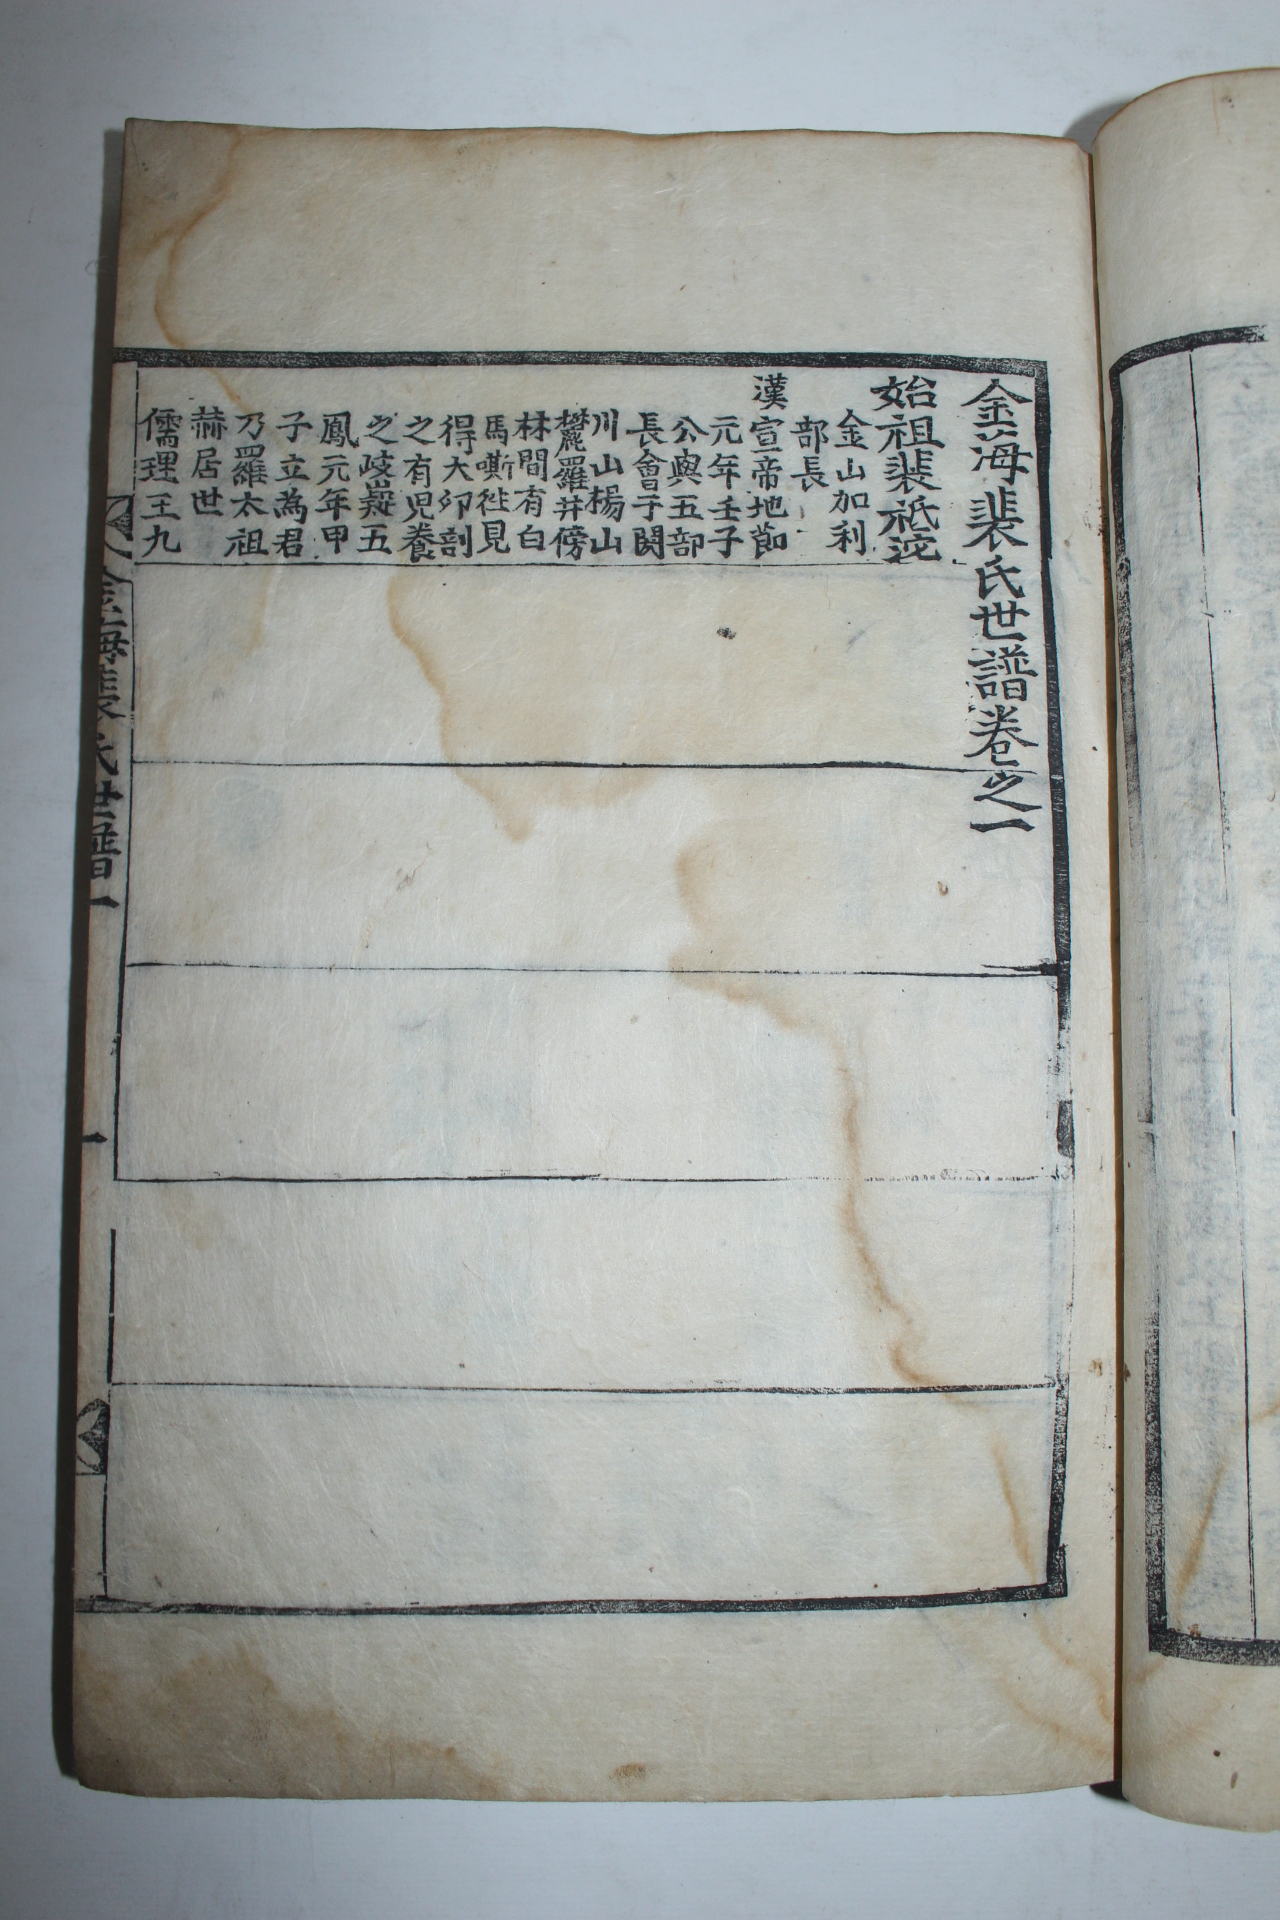 金海裴氏世譜卷之一
始祖裴祗沱
金山加利
部長
漢宣帝地節
元年壬子
公與五部
長會于閼
川山楊山
欝羅井傍
林間有白
馬嘶往見
得大卵剖
之有児養
之岐嶷五
鳳元年甲
子立為君
乃羅太祖
赫居世
儒理王九
金海裴氏世譜一
一